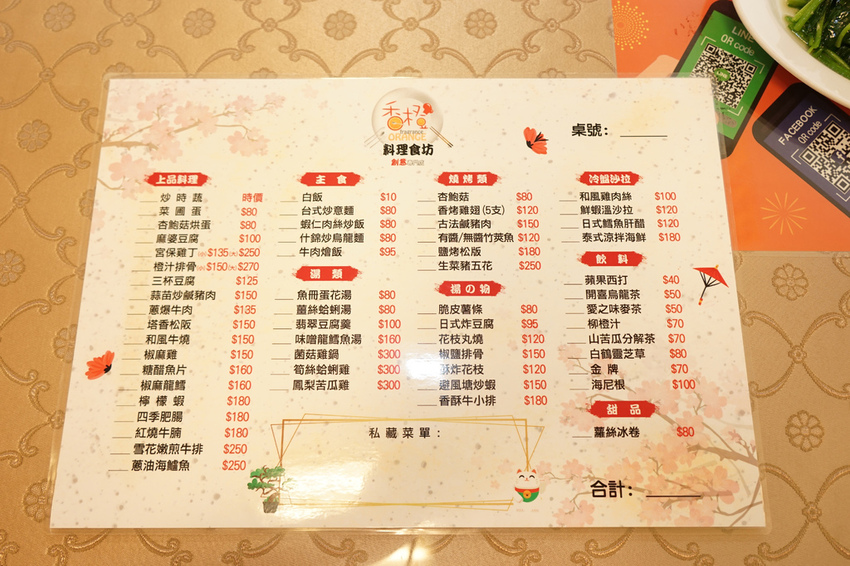 香橙
ORANGE
料理食坊
桌號：
上品料理
炒時蔬 時價
菜圃蛋 $80
杏鮑菇烘蛋 $80
麻婆豆腐 $100
宮保雞丁(小)$135(大)$250
橙汁排骨(小)$150(大)$270
三杯豆腐 $125
蒜苗炒鹹豬肉 $150
蔥爆牛肉 $135
塔香松阪 $150
和風牛燒 $150
椒麻雞 $150
糖醋魚片 $160
椒麻龍鱈 $160
檸檬蝦 $180
四季肥腸 $180
紅燒牛腩 $180
雪花嫩煎牛排 $250
蔥油海鱸魚 $250
主食
白飯 $10
台式炒意麵 $80
蝦仁肉絲炒飯 $80
什錦炒烏龍麵 $80
牛肉燴飯 $95
湯類
魚冊蛋花湯 $80
薑絲蛤蜊湯 $80
翡翠豆腐羹 $100
味噌龍鱈魚湯 $160
菌菇雞鍋 $300
筍絲蛤蜊雞 $300
鳳梨苦瓜雞 $300
燒烤類
杏鮑菇 $80
香烤雞翅(5支) $120
古法鹹豬肉 $150
有醬/無醬竹莢魚 $120
鹽烤松阪 $180
生菜豬五花 $250
揚の物
脆皮薯條 $80
日式炸豆腐 $95
花枝丸燒 $120
椒鹽排骨 $150
酥炸花枝 $120
避風塘炒蝦 $150
香酥牛小排 $180
冷盤沙拉
和風雞肉絲 $100
鮮蝦溫沙拉 $120
日式鱈魚肝醋 $120
泰式涼拌海鮮 $180
飲料
蘋果西打 $40
開喜烏龍茶 $50
愛之味麥茶 $50
柳橙汁 $70
山苦瓜分解茶 $70
白鶴靈芝草 $80
金牌 $70
海尼根 $100
甜品
蘿絲冰卷 $80
私藏菜單：
合計：
LINE
QR code
FACEBOOK
QR code